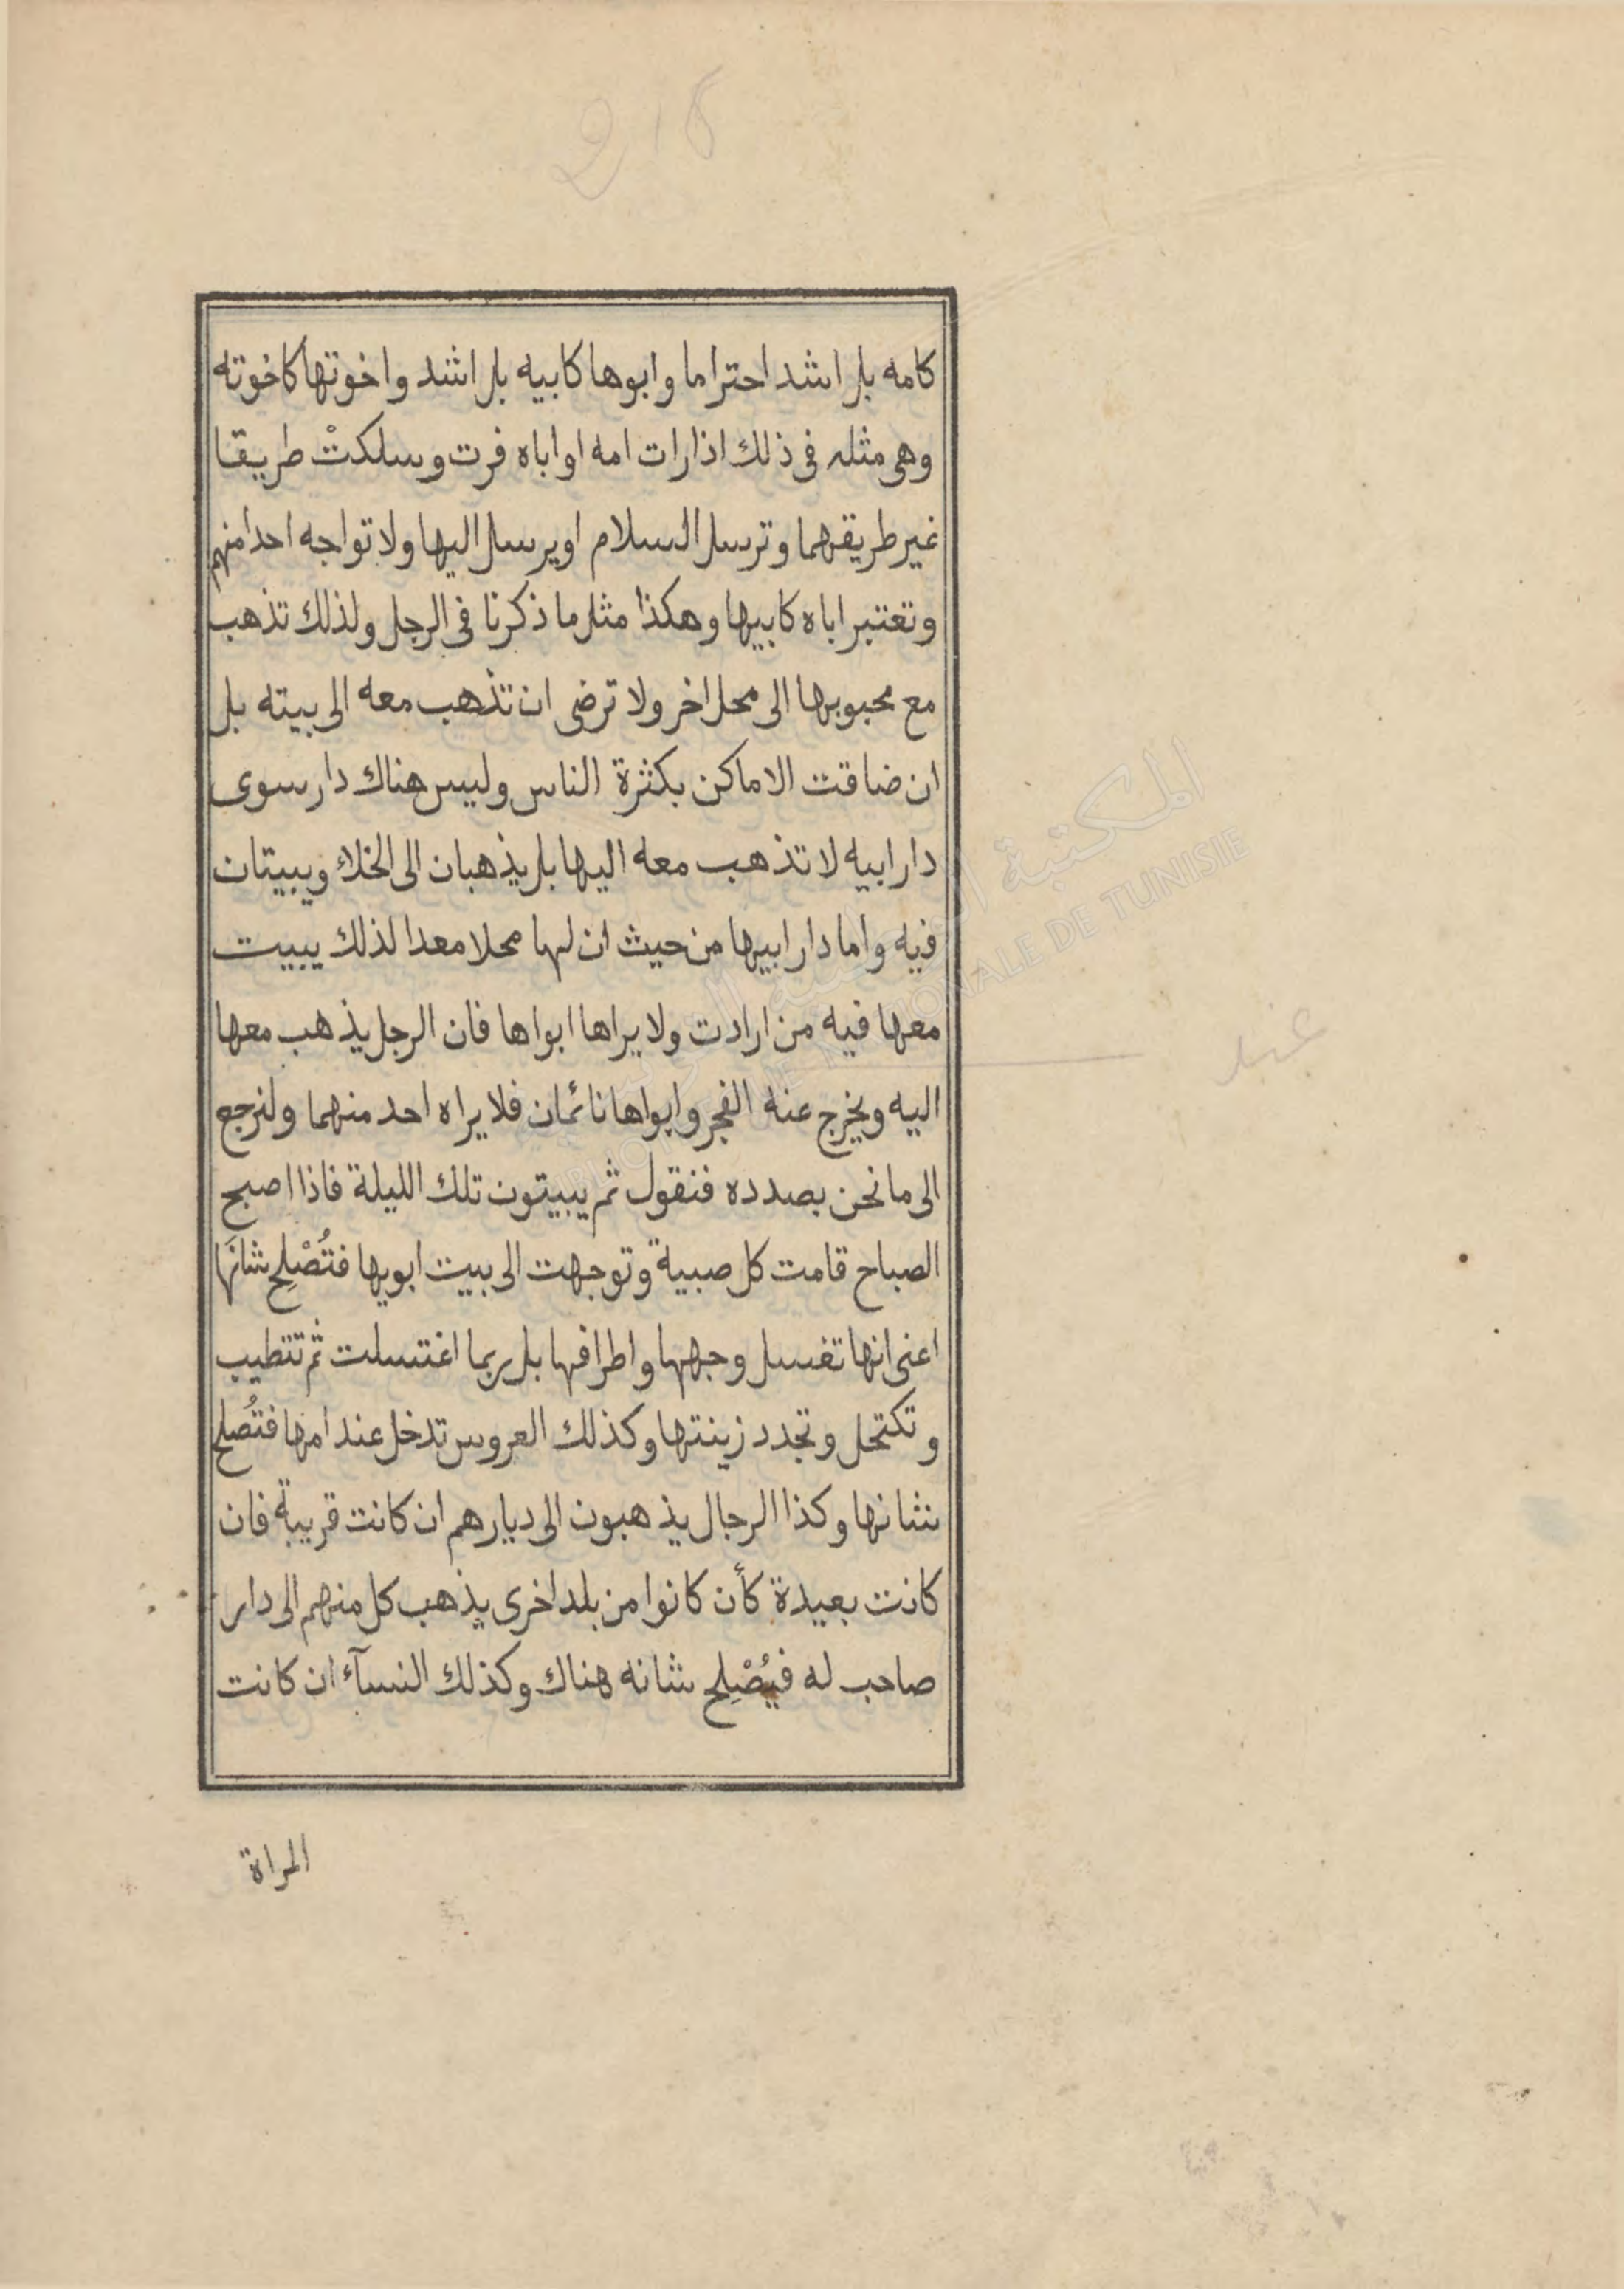 216
كامه بل اشد احتراما وابوها كابيه بل اشد واخوتها كاخوته
وهى مثله فى ذلك اذا رات امه او اباه فرت وسلكتْ طريقا
غير طريقهما وترسل السلام او يرسل اليها ولا تواجه احدا منهم
وتعتبر اباه كابيها وهكذا مثل ما ذكرنا فى الرجل ولذلك تذهب
مع محبوبها الى محل اخر ولا ترضى ان تذهب معه الى بيته بل
ان ضاقت الاماكن بكثرة الناس وليس هناك دار سوى
دار ابيه لا تذهب معه اليها بل يذهبان الى الخلاء ويبيتان
فيه واما دار ابيها من حيث ان لها محلا معدا لذلك يبيت
معها فيه من ارادت ولا يراها ابواها فان الرجل يذهب معها
اليه ويخرج عنه الفجر وابواها نائمان فلا يراه احد منهما ولنرجع
عند
الى ما نحن بصدده فنقول ثم يبيتون تلك الليلة فاذا اصبح
الصباح قامت كل صبية وتوجهت الى بيت ابويها فتُصْلِح شانَها
اعنى انها تغسل وجهها واطرافها بل ربما اغتسلت ثم تتطيب
وتكتحل وتجدد زينتها وكذلك العروس تدخل عند امها فتُصلح
شانها وكذا الرجال يذهبون الى ديارهم ان كانت قريبة فان
كانت بعيدة كأن كانوا من بلد اخرى يذهب كل منهم الى دار
صاحب له فيُصْلِح شانه هناك وكذلك النسآء ان كانت
المراة
المكتبة الوطنية التونسية
BIBLIOTHEQUE NATIONALE DE TUNISIE